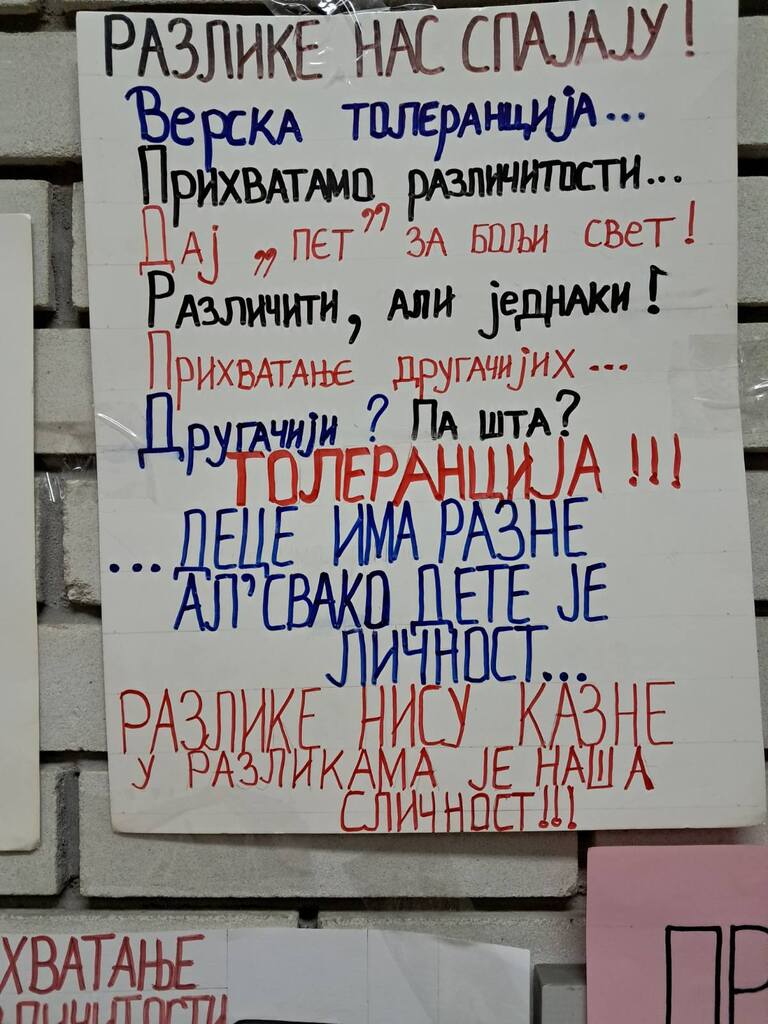 РАЗЛИКЕ НАС СПАЈАЈУ!
Верска толеранција...
Прихватамо различитости...
Дај „пет” за бољи свет!
Различити, али једнаки!
Прихватање другачијих...
Другачији? Па шта?
ТОЛЕРАНЦИЈА!!!
...ДЕЦЕ ИМА РАЗНЕ
АЛ'СВАКО ДЕТЕ ЈЕ
ЛИЧНОСТ...
РАЗЛИКЕ НИСУ КАЗНЕ
У РАЗЛИКАМА ЈЕ НАША
СЛИЧНОСТ!!!
ХВАТАЊЕ
ЛИЧИТОСТИ
ПР